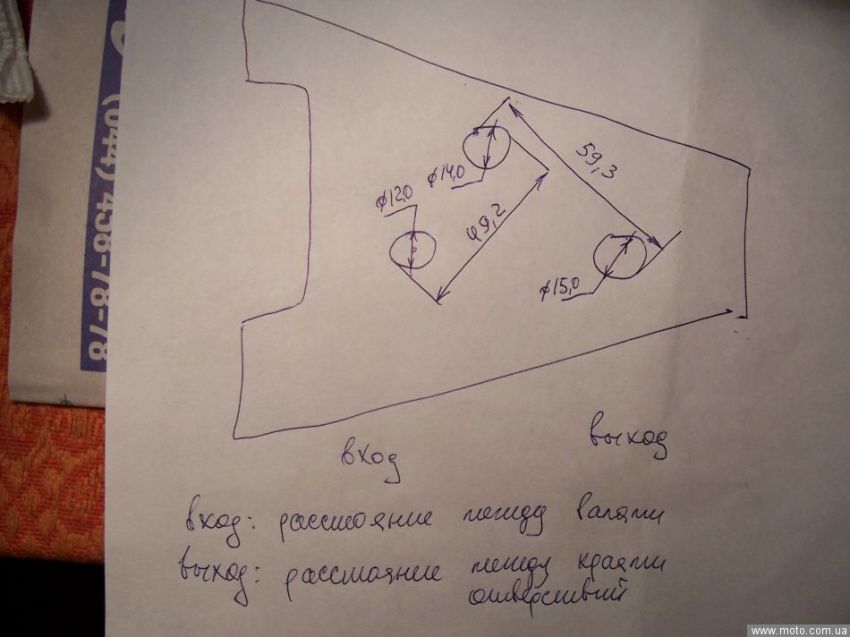 (044) 458-78-78
59,3
ϕ14,0
ϕ12,0
49,2
ϕ15,0
выход
вход
вход: расстояние между валами
выход: расстояние между краями
отверстий
www.moto.com.ua